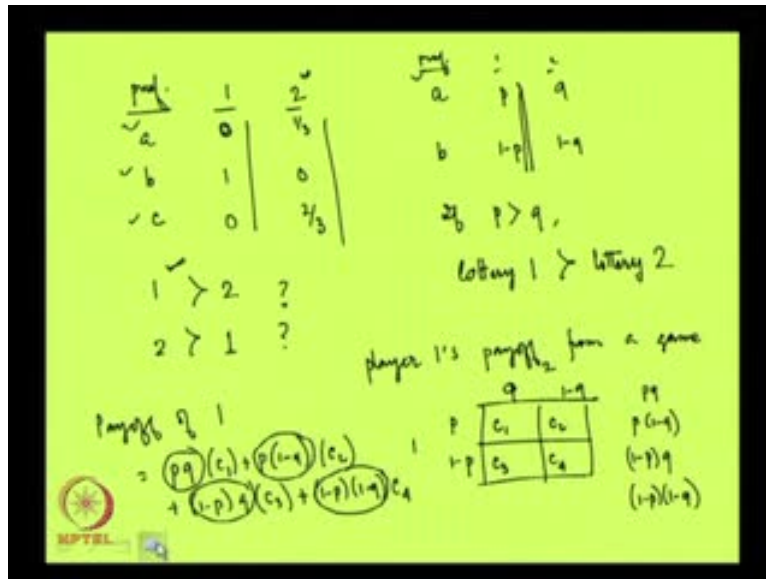 pref. 1 2
a 0 1/3
b 1 0
c 0 2/3
1 > 2 ?
2 > 1 ?
pref. 1 2
a p q
b 1-p 1-q
If p > q,
lottery 1 > lottery 2
player 1's payoff from a game
2
q 1-q
1 p c₁ c₂
1-p c₃ c₄
pq
p(1-q)
(1-p)q
(1-p)(1-q)
Payoff of 1
= (pq)(c₁) + p(1-q)(c₂)
+ (1-p)q(c₃) + (1-p)(1-q)c₄
NPTEL